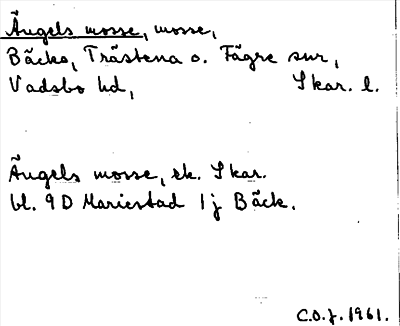 Ängels mosse, mosse,
Bäcks, Trästena o. Fägre snr,
Vadsbo hd, Skar. l.
Ängels mosse, ek. Skar.
bl. 9D Mariestad 1j Bäck.
C.O.J. 1961.